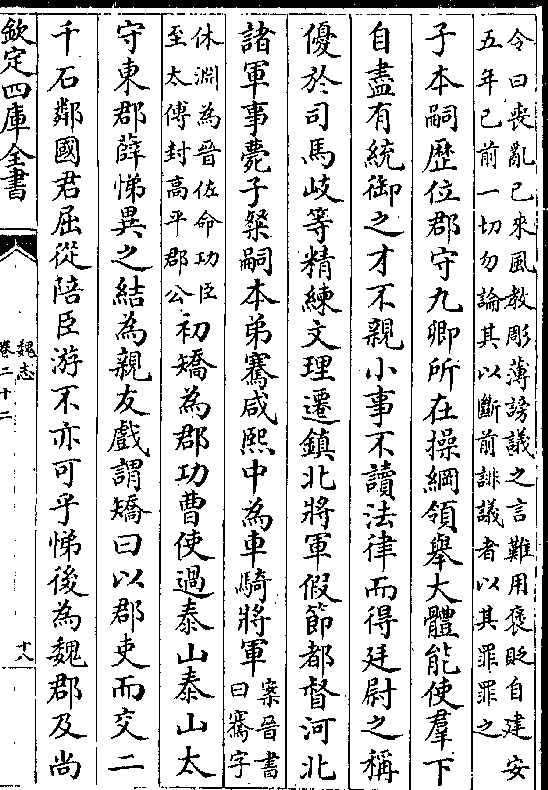 令曰喪亂已來風教彫薄謗議之言難用褒貶自建安
五年已前一切勿論其以斷前誹議者以其罪罪之
子本嗣歷位郡守九卿所在操綱領舉大體能使羣下
自盡有統御之才不親小事不讀法律而得廷尉之稱
優於司馬岐等精練文理遷鎮北將軍假節都督河北
諸軍事薨子粲嗣本弟騫咸熙中為車騎將軍
案晉書
曰騫字
休淵為晉佐命功臣
至太傅封高平郡公
初矯為郡功曹使過泰山泰山太
守東郡薛悌異之結為親友戲謂矯曰以郡吏而交二
千石鄰國君屈從陪臣游不亦可乎悌後為魏郡及尚
欽定四庫全書
魏志
卷二十二
十八